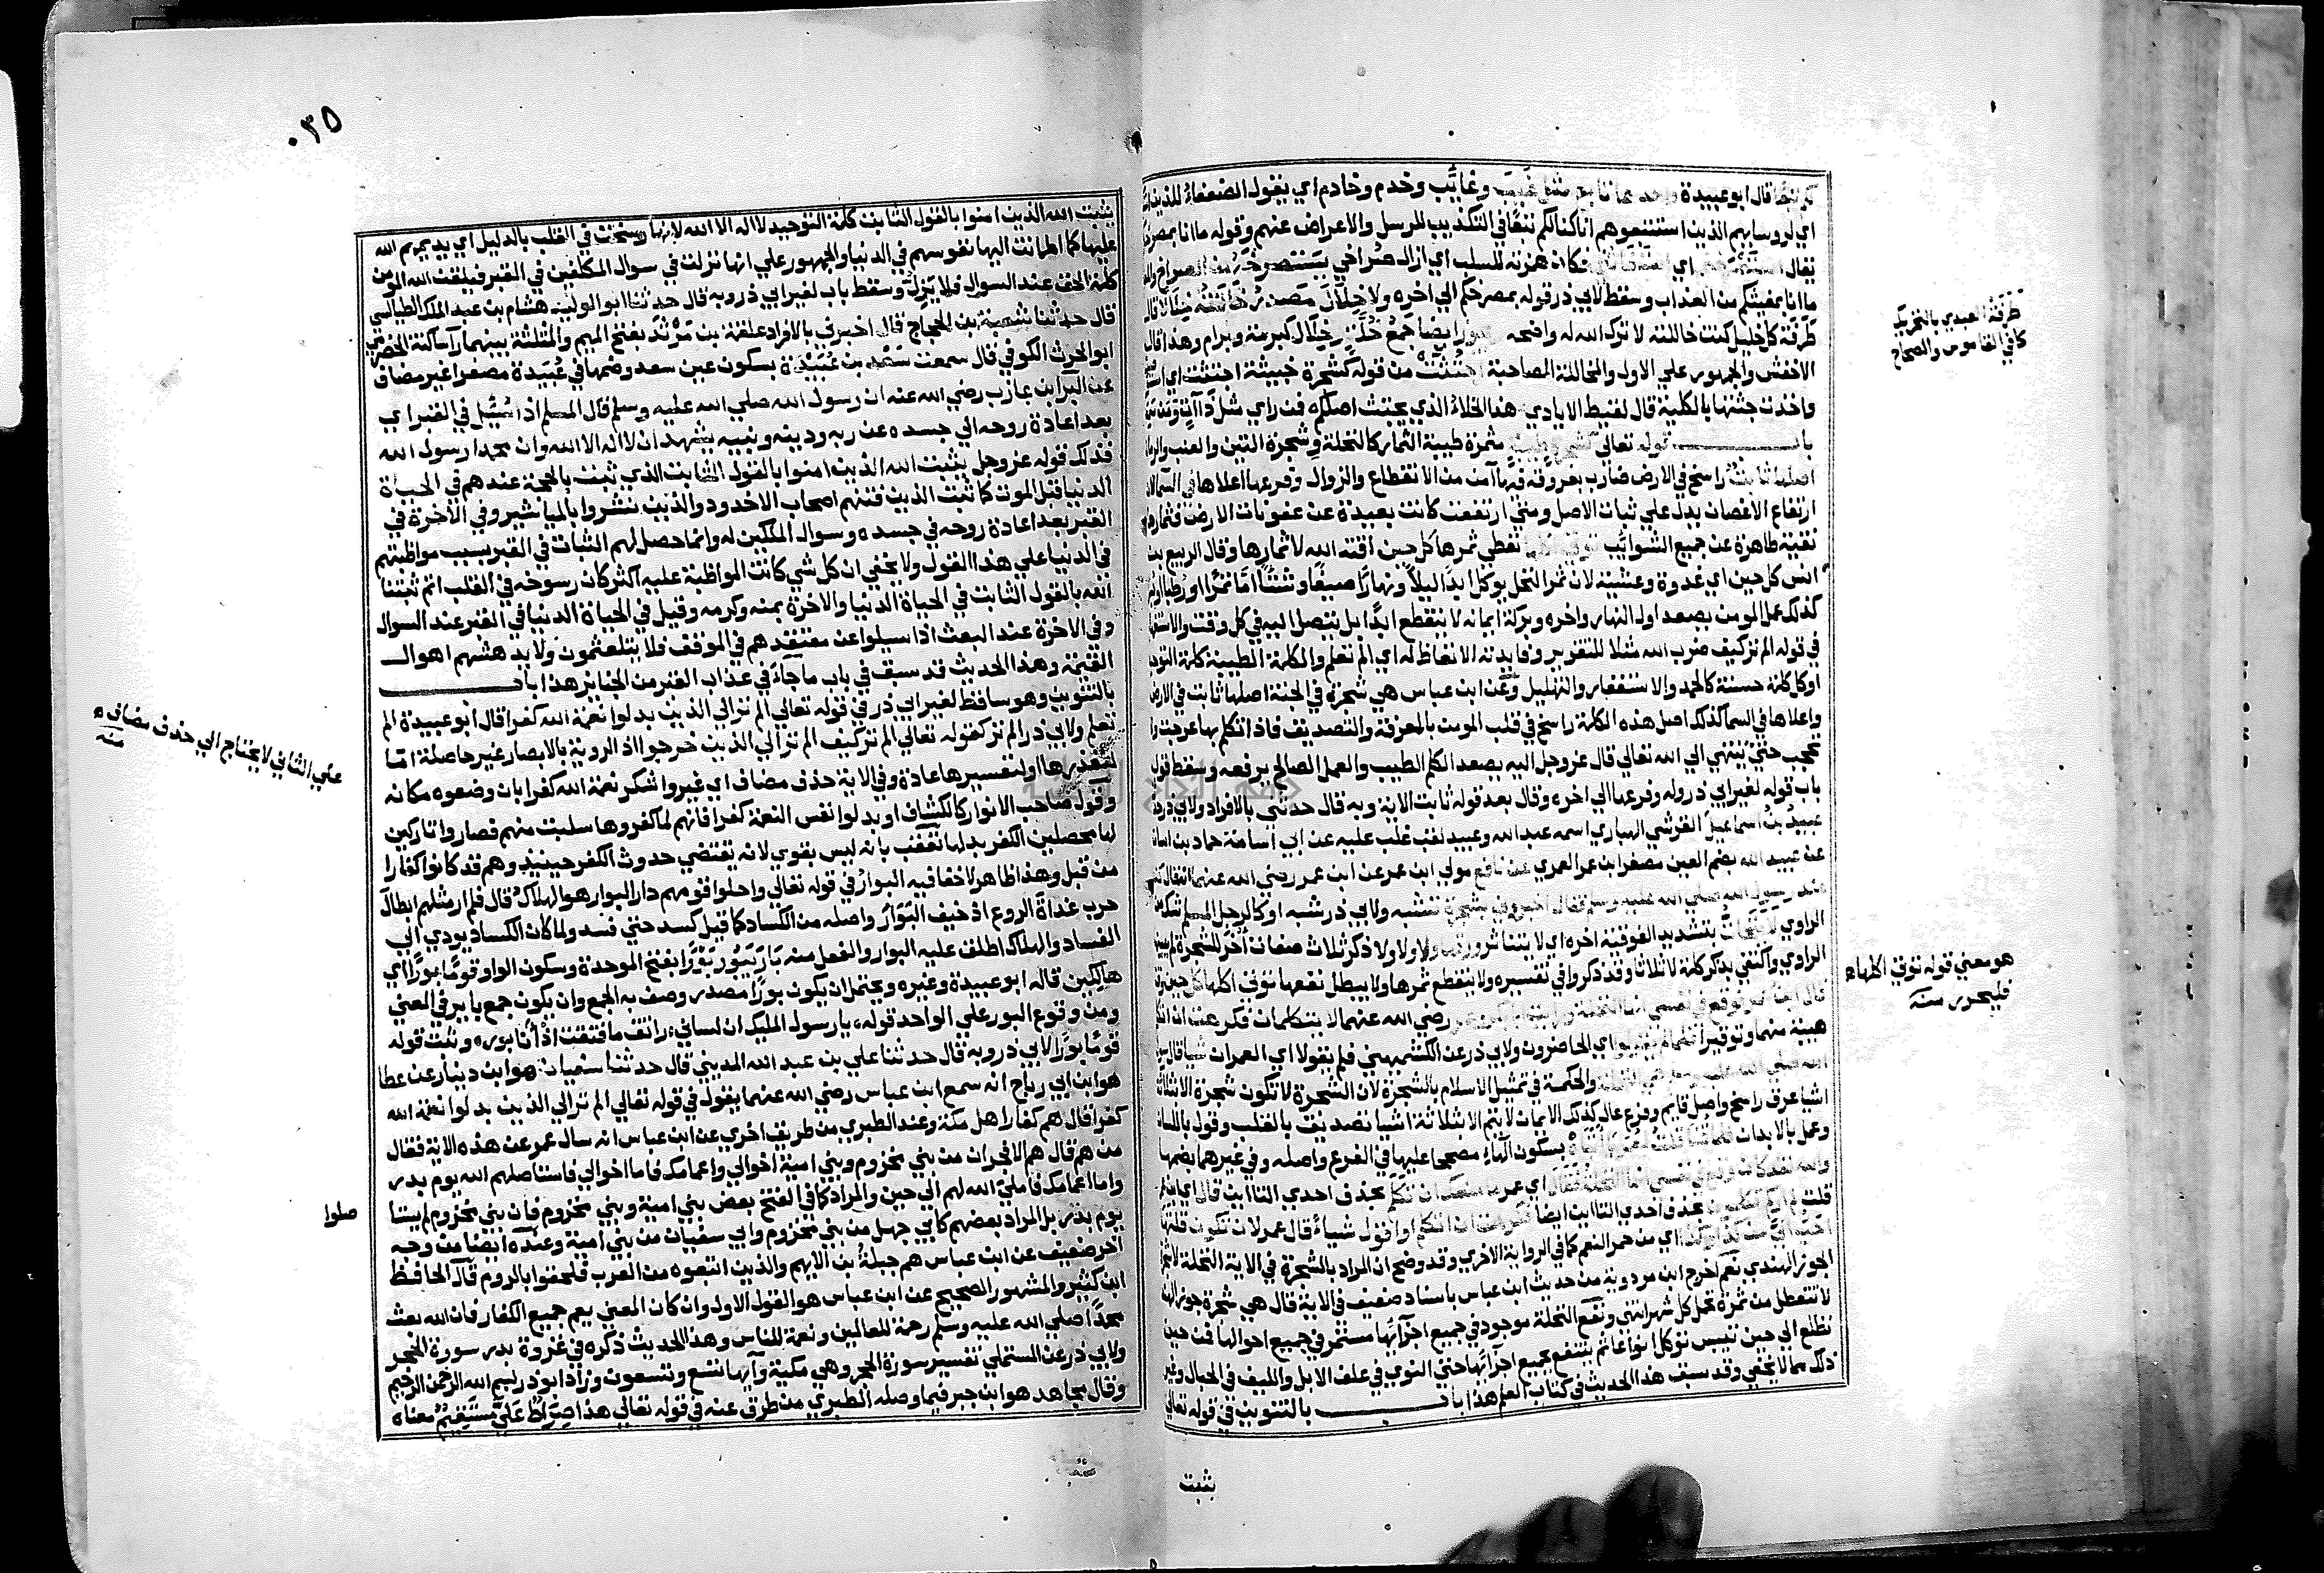 لكم تبعا قال ابو عبيدة واحدها تابع مثل غيب وغائب وخدم وخادم اي يقول الضعفاء للذين
اي لروسايهم الذين استتبعوهم انا كنا لكم تبعا في التكذيب للرسل والاعراض عنهم وقوله ما انا بمصرخكم
يقال اي فكان همزته للسلب اي ازال صراخي يستصرخه من الصراخ
ما انا بمغيثكم من العذاب وسقط لابي ذر قوله بمصرخكم الي اخره ولا خلال مصدر خاللته خلالا قال
طرفة كل خليل كنت خاللته لا ترك الله له واضحه ويجوز ايضا جمع خلة وخلال كبرمة وبرام وهذا قاله
الاخفش والجمهور علي الاول والمخاللة المصاحبة اجتثت من قوله كشجرة خبيثة اجتثت اي
واخذت جثتها بالكلية قال لقيط الايادي هذا الخلاء الذي يجتث اصلكم فمن راي مثل ذا
باب قوله تعالي كشجرة طيبة مثمرة طيبة الثمار كالنخلة وشجرة التين والعنب والرمان
اصلها ثابت راسخ في الارض ضارب بعروقه فيها آمن من الانقطاع والزوال وفرعها اعلاها في السما لان
ارتفاع الاغصان يدل علي ثبات الاصل ومتي ارتفعت كانت بعيدة عن عفونات الارض فثمارها
نقية طاهرة عن جميع الشوائب توتي اكلها تعطي ثمرها كل حين اقته الله لاثمارها وقال الربيع بن
انس كل حين اي غدوة وعشية لان ثمر النخل يوكل ابدا ليلا ونهارا صيفا وشتا اما تمرا او رطبا او
كذلك عمل المومن يصعد اول النهار واخره وبركة ايمانه لا ينقطع ابدا بل يتصل اليه في كل وقت والاستفهام
في قوله الم تر كيف ضرب الله مثلا للتقرير وفايدته الايقاظ له اي الم تعلم والكلمة الطيبة كلمة التوحيد
او كل كلمة حسنة كالحمد والاستغفار والتهليل وعن ابن عباس هي شجرة في الجنة اصلها ثابت في الارض
واعلاها في السما كذلك اصل هذه الكلمة راسخ في قلب المومن بالمعرفة والتصديق فاذا تكلم بها عرجت ولا
تحجب حتي تنتهي الي الله تعالي قال عز وجل اليه يصعد الكلم الطيب والعمل الصالح يرفعه وسقط قوله
باب قوله لغير ابي ذر وله وفرعها الي اخره وقال بعد قوله ثابت الاية وبه قال حدثني بالافراد ولابي ذر حدثنا
عبيد بن اسماعيل القرشي الهباري اسمه عبد الله وعبيد لقب غلب عليه عن ابي اسامة حماد بن اسامة
عن عبيد الله بضم العين مصغرا ابن عمر العمري عن نافع مولي ابن عمر عن ابن عمر رضي الله عنهما انه قال
عند رسول الله صلي الله عليه وسلم فقال اخبروني بشجرة تشبه ولابي ذر شبه او كالرجل المسلم شك من
الراوي لا يتحات بتشديد الفوقية اخره اي لا يتناثر ورقها ولا ولا ولا ذكر ثلاث صفات اخر للشجرة لم يبينها
الراوي واكتفي بذكر كلمة لا ثلاثا وقد ذكروا في تفسيره ولا ينقطع ثمرها ولا يبطل نفعها توتي اكلها كل حين
قال ابن عمر فوقع في نفسي انها النخلة ورايت ابا بكر وعمر رضي الله عنهما لا يتكلمان فكرهت ان اتكلم
هيبة منهما وتوقيرا فلما لم يقولوا اي الحاضرون ولابي ذر عن الكشميهني فلم يقولا اي العمران شيا قال رسول
الله صلي الله عليه وسلم هي النخلة والحكمة في تمثيل الاسلام بالشجرة لان الشجرة لا تكون شجرة الا بثلاثة
اشيا عرق راسخ واصل قايم وفرع عال كذلك الايمان لا يتم الا بثلاثة اشيا تصديق بالقلب وقول باللسان
وعمل بالابدان فلما قمنا قلت لعمر يا ابتاه بسكون الهاء مصححا عليها في الفرع واصله وفي غيرهما بضمها
والله لقد كان وقع في نفسي انها النخلة فقال اي عمر ما منعك ان تكلم بحذف احدي التاين قال اي ابن عمر
قلت لم اركم تكلمون بحذف احدي التاين ايضا فكرهت ان اتكلم او اقول شياء قال عمر لان تكون قلتها
احب الي من كذا وكذا اي من حمر النعم كما في الرواية الاخري وقد وضح ان المراد بالشجرة في الاية النخلة لا شجرة
الجوز الهندي نعم اخرج ابن مردوية من حديث ابن عباس باسناد ضعيف في الاية قال هي شجرة جوز الهند
لا تتعطل من ثمرة تحمل كل شهر انتهي ونفع النخلة موجود في جميع اجزايها مستمر في جميع احوالها فمن حين
تطلع الي حين تيبس توكل انواعا ثم ينتفع بجميع اجزايها حتي النوي في علف الابل والليف في الحبال وغير
ذلك مما لا يخفي وقد سبق هذا الحديث في كتاب العلم هذا باب بالتنوين في قوله تعالي
يثبت
طرفة العبدي بالتحريك
كما في القاموس والصحاح
هو معني قوله توتي اكلها
فليحرر منه
٠٣٥
يثبت الله الذين امنوا بالقول الثابت كلمة التوحيد لا اله الا الله لانها رسخت في القلب بالدليل اي يديمهم الله
عليها كما اطمانت اليها نفوسهم في الدنيا والجمهور علي انها نزلت في سوال المكلفين في القبر فيلقن الله المومن
كلمة الحق عند السوال فلا يزل وسقط باب لغير ابي ذر وبه قال حدثنا ابو الوليد هشام بن عبد الملك الطيالسي
قال حدثنا شعبة بن الحجاج قال اخبرني بالافراد علقمة بن مرثد بفتح الميم والمثلثة بينهما راء ساكنة الحضرمي
ابو الحرث الكوفي قال سمعت سعد بن عبيدة بسكون عين سعد وضمها في عبيدة مصغرا غير مضاف
عن البرا بن عازب رضي الله عنه ان رسول الله صلي الله عليه وسلم قال المسلم اذا سئل في القبر اي
بعد اعادة روحه الي جسده عن ربه ودينه ونبيه يشهد ان لا اله الا الله وان محمدا رسول الله
فذلك قوله عز وجل يثبت الله الذين امنوا بالقول الثابت الذي ثبت بالحجة عندهم في الحياة
الدنيا قبل الموت كما ثبت الذين فتنهم اصحاب الاخدود والذين نشروا بالمياشير وفي الاخرة في
القبر بعد اعادة روحه في جسده وسوال الملكين له وانما حصل لهم الثبات في القبر بسبب مواظبتهم
في الدنيا علي هذا القول ولا يخفي ان كل شي كانت المواظبة عليه اكثر كان رسوخه في القلب اتم ثبتنا
الله بالقول الثابت في الحياة الدنيا والاخرة بمنه وكرمه وقيل في الحياة الدنيا في القبر عند السوال
وفي الاخرة عند البعث اذا سيلوا عن معتقدهم في الموقف فلا يتلعثمون ولا يدهشهم اهوال
القيمة وهذا الحديث قد سبق في باب ما جاء في عذاب القبر من الجنايز هذا باب
بالتنوين وهو ساقط لغير ابي ذر في قوله تعالي الم تر الي الذين بدلوا نعمة الله كفرا قال ابو عبيدة الم
تعلم ولابي ذر الم تر كقوله تعالي الم تر كيف الم تر الي الذين خرجوا اذ الروية بالابصار غير حاصلة اما
لتعذرها او لتعسيرها عادة وفي الاية حذف مضاف اي غيروا شكر نعمة الله كفرا بان وضعوه مكانه
وقول صاحب الانوار كالكشاف او بدلوا نفس النعمة كفرا فانهم لما كفروها سلبت منهم فصاروا تاركين
لها محصلين الكفر بدلها تعقب بانه ليس بقوي لانه يقتضي حدوث الكفر حينيذ وهم قد كانوا كفارا
من قبل وهذا ظاهر لا خفا فيه البوار في قوله تعالي واحلوا قومهم دار البوار هو الهلاك قال فلم ار مثلهم ابطال
حرب غداة الروع اذ خيف البوار واصله من الكساد كما قيل كسد حتي فسد ولما كان الكساد يودي الي
الفساد والهلاك اطلق عليه البوار والفعل منه بار يبور بورا بفتح الموحدة وسكون الواو قوما بورا اي
هالكين قاله ابو عبيدة وغيره ويحتمل ان يكون بورا مصدر وصف به الجمع وان يكون جمع باير في المعني
ومن وقوع البور علي الواحد قوله، يا رسول المليك ان لساني، راتق ما فتقت اذ انا بور، وثبت قوله
قوما بورا لابي ذر وبه قال حدثنا علي بن عبد الله المديني قال حدثنا سفيان هو ابن دينار عن عطا
هو ابن ابي رباح انه سمع ابن عباس رضي الله عنهما يقول في قوله تعالي الم تر الي الذين بدلوا نعمة الله
كفرا قال هم كفار اهل مكة وعند الطبري من طريق اخري عن ابن عباس انه سال عمر عن هذه الاية فقال
من هم قال هم الافجران من بني مخزوم وبني امية اخوالي واعمامك فاما اخوالي فاستاصلهم الله يوم بدر
واما اعمامك فاملي الله لهم الي حين والمراد كما في الفتح بعض بني امية وبني مخزوم فان بني مخزوم لم يستا
يوم بدر بل المراد بعضهم كابي جهل من بني مخزوم وابي سفيان من بني امية وعنده ايضا من وجه
اخر ضعيف عن ابن عباس هم جبلة بن الايهم والذين اتبعوه من العرب فلحقوا بالروم قال الحافظ
ابن كثير والمشهور الصحيح عن ابن عباس هو القول الاول وان كان المعني يعم جميع الكفار فان الله بعث
محمدا صلي الله عليه وسلم رحمة للعالمين ونعمة للناس وهذا الحديث ذكره في غزوة بدر سورة الحجر
ولابي ذر عن المستملي تفسير سورة الحجر وهي مكية وآيها تسع وتسعون وزاد ابو ذر بسم الله الرحمن الرحيم
وقال مجاهد هو ابن جبر فيما وصله الطبري من طرق عنه في قوله تعالي هذا صراط علي مستقيم معناه
علي الثاني لا يحتاج الي حذف مضاف
منه
صلوا